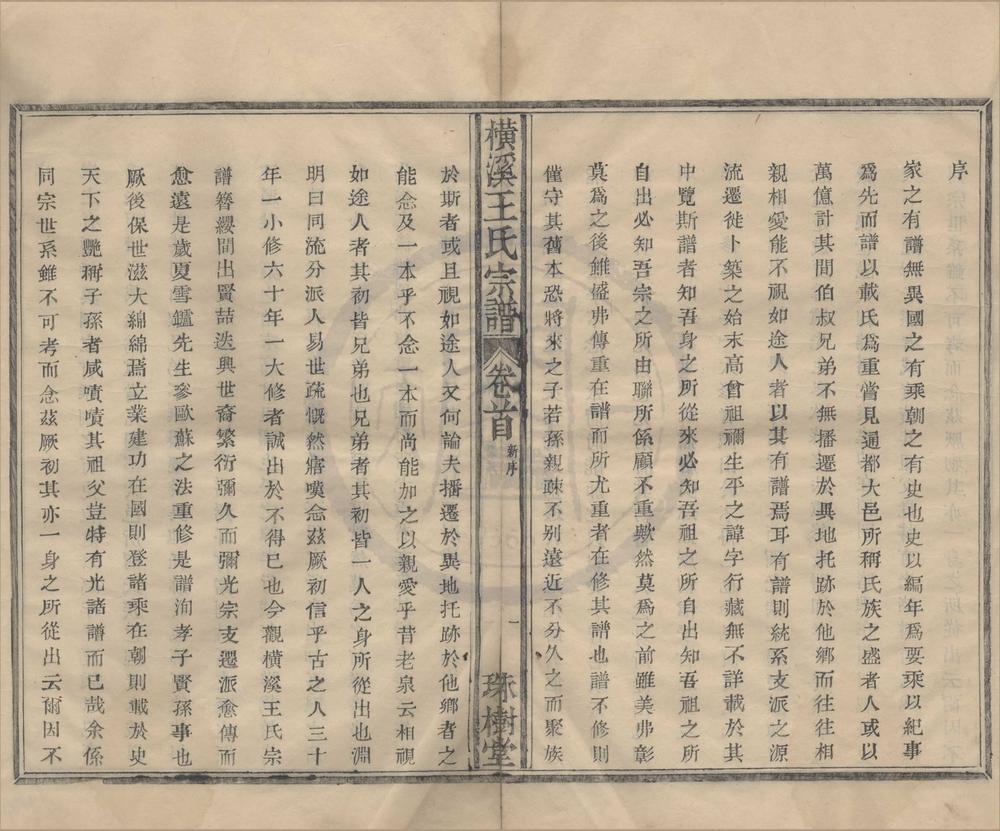 序
家之有譜無異國之有乘朝之有史也史以編年爲要乘以紀事
爲先而譜以載氏爲重嘗見通都大邑所稱氏族之盛者人或以
萬億計其間伯叔兄弟不無播遷於異地托跡於他鄉而往往相
親相愛能不視如途人者以其有譜焉耳有譜則統系支派之源
流遷徙卜築之始末高曾祖禰生平之諱字行藏無不詳載於其
中覽斯譜者知吾身之所從來必知吾祖之所自出知吾祖之所
自出必知吾宗之所由聯所係顧不重歟然莫爲之前雖美弗彰
莫爲之後雖盛弗傳重在譜而所尤重者在修其譜也譜不修則
僅守其舊本恐將來之子若孫親疎不别遠近不分久之而聚族
橫溪王氏宗譜 卷首 新序 一 珠樹堂
於斯者或且視如途人又何論夫播遷於異地托跡於他鄉者之
能念及一本乎不念一本而尚能加之以親愛乎昔老泉云相視
如途人者其初皆兄弟也兄弟者其初皆一人之身所從出也淵
明曰同流分派人易世疏慨然寤嘆念茲厥初信乎古之人三十
年一小修六十年一大修者誠出於不得已也今觀橫溪王氏宗
譜簪纓間出賢喆迭興世裔繁衍彌久而彌光宗支遷派愈傳而
愈遠是歲夏雪鱸先生參歐蘇之法重修是譜洵孝子賢孫事也
厥後保世滋大綿綿焉立業建功在國則登諸乘在朝則載於史
天下之艷稱子孫者咸嘖嘖其祖父豈特有光諸譜而已哉余係
同宗世系雖不可考而念茲厥初其亦一身之所從出云爾因不